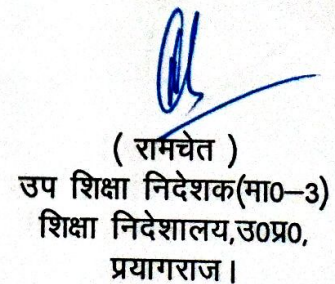 ( रामचेत )
उप शिक्षा निदेशक(मा0–3)
शिक्षा निदेशालय,उ0प्र0,
प्रयागराज।